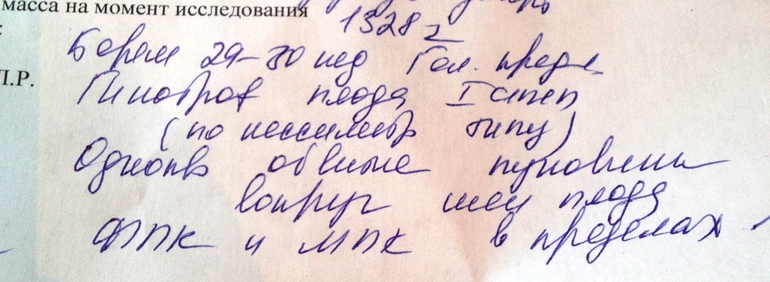 масса на момент исследования 1328 г
Л.Р.
Берем 29-30 нед Гол. предл
Гипотроф плода I степ
(по ассиметр типу)
Однокр обвитие пуповины
вокруг шеи плода
ФПК и МПК в пределах